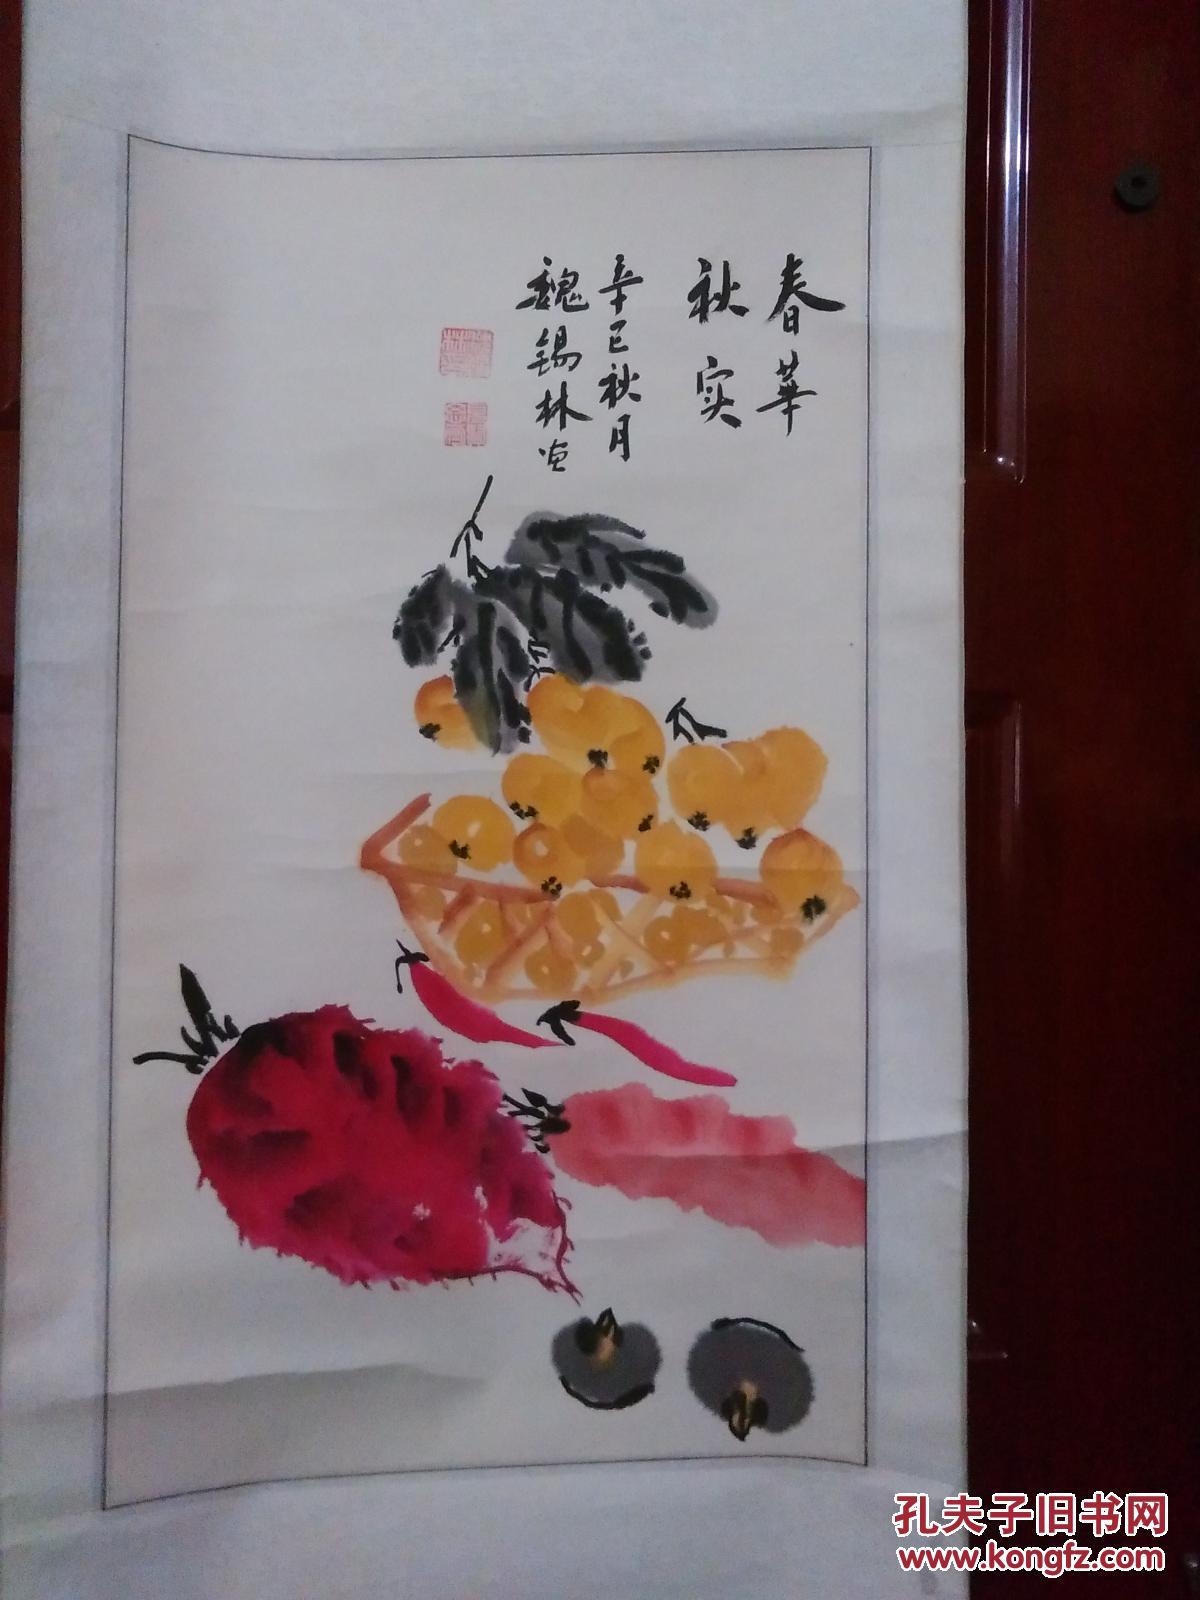 春華
秋实
辛巳秋月
魏锡林画
孔夫子旧书网
www.kongfz.com